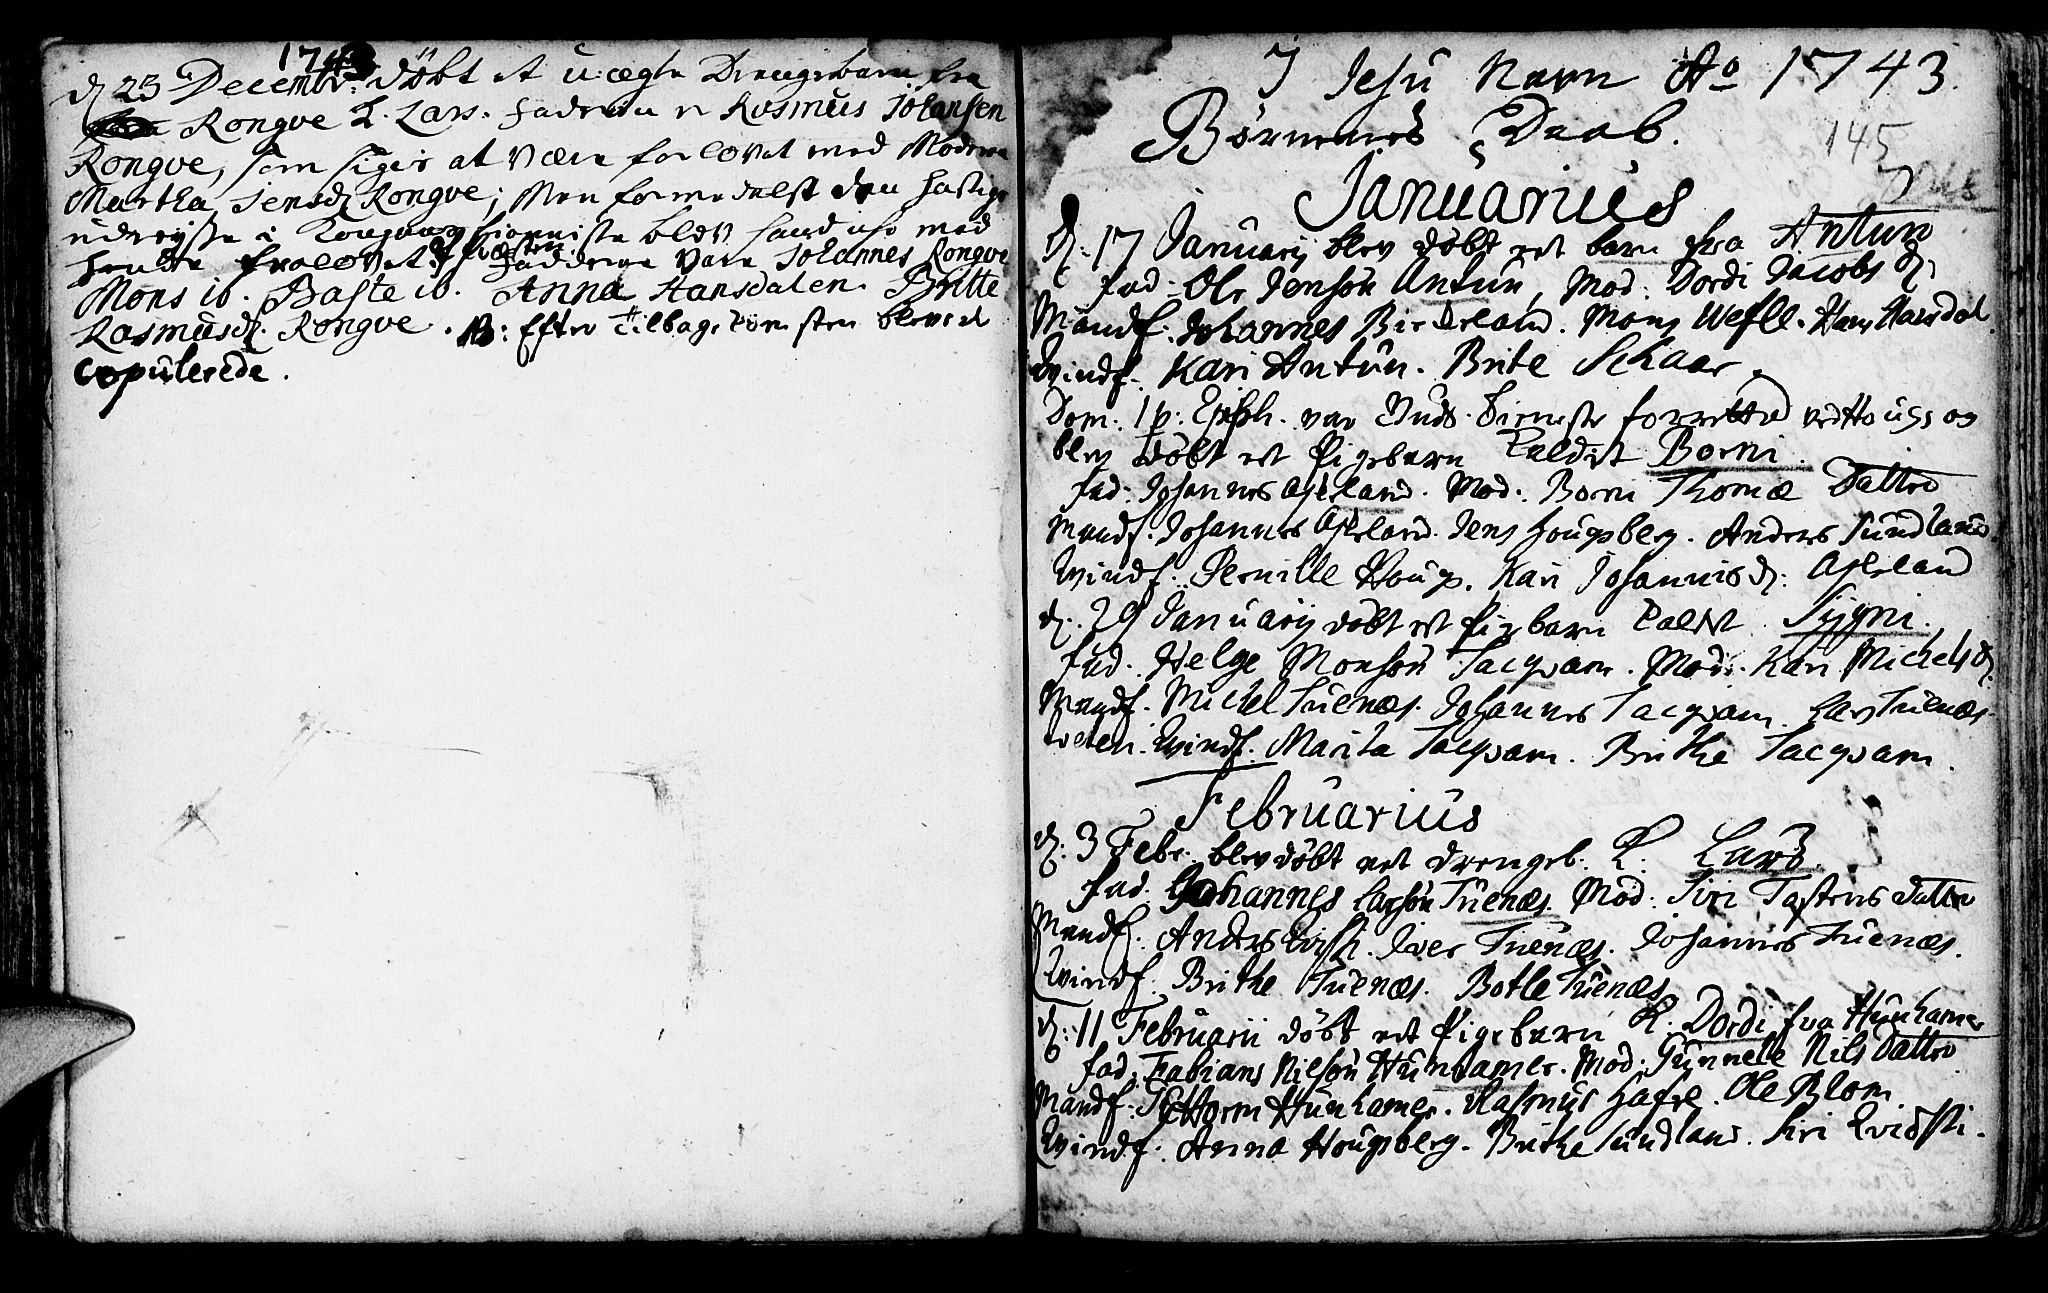 1743
d 25 Decembr: döbt et u:ægte Drengebarn fra
Rongve K. Lars. Faderen er Rasmus Johansen
Rongve, som siges at være forlovet med Moderen
Martha Jensd Rongve; Men formedelst den hastige
udreyse i Kongens tienniste blev hand icke med
hende trolovet. Fadderne vare Johannes Rongve
Mons ib. Baste ib. Anna Hansdalen. Britte
Rasmusd. Rongve. NB: Efter Tilbagekomsten blev de
copulerede.
I Jesu Navn Ao 1743.
Børnenes Daab.
145
Januarius
d. 17 Januarij blev döbt ect barn fra Antun
fad. Ole Jensön Antun, Mod. Dordi Jacobs d.
Mandf. Johannes Birkeland. Mons Wefle. Hans Hansdal.
Kvindf. Kari Antun. Brite Skaar.
Dom. 1 p. Epiph. var Guds Tieneste forretted ved Hougs og
blev döbt ect Pigebarn kaldet Borni.
fad. Johannes Asheland. Mod. Borni Thomæ Datter
Mandf. Johannes Asheland. Jens Hougsberg. Anders Sundland.
Kvindf. Pernille Houg. Kari Johannisd. Asheland
d. 29 Januarij döbt ect Pigebarn kaldet Sygni.
fad. Helge Monsön Tacqvam. Mod. Kari Michelsd.
Mandf. Michel Tuenæs. Johannes Tacqvam. Lars Tuenæs-
tveten. Kvindf. Marita Tacqvam. Brithe Tacqvam.
Februarius
d. 3 Febr. blev döbt ect drengeb. K. Lars.
fad. Johannes Larsön Tuenæs. Mod. Siri Tostens Datter
Mandf. Anders Iver Tuenæs. Johannes Tuenæs.
Kvindf. Brithe Tuenæs. Botle Tuenæs
d. 11 Februarii döbt ect Pigebarn K. Dordi fra Hunhamer
fad. Fabians Nilsön Hunhamer. Mod. Gunnele Nils Datter
Mandf. Guttorm Hunhamer. Rasmus Hafre. Ole Blom
Kvindf. Anna Hougsberg. Brithe Sundland. Siri Qvidsti.